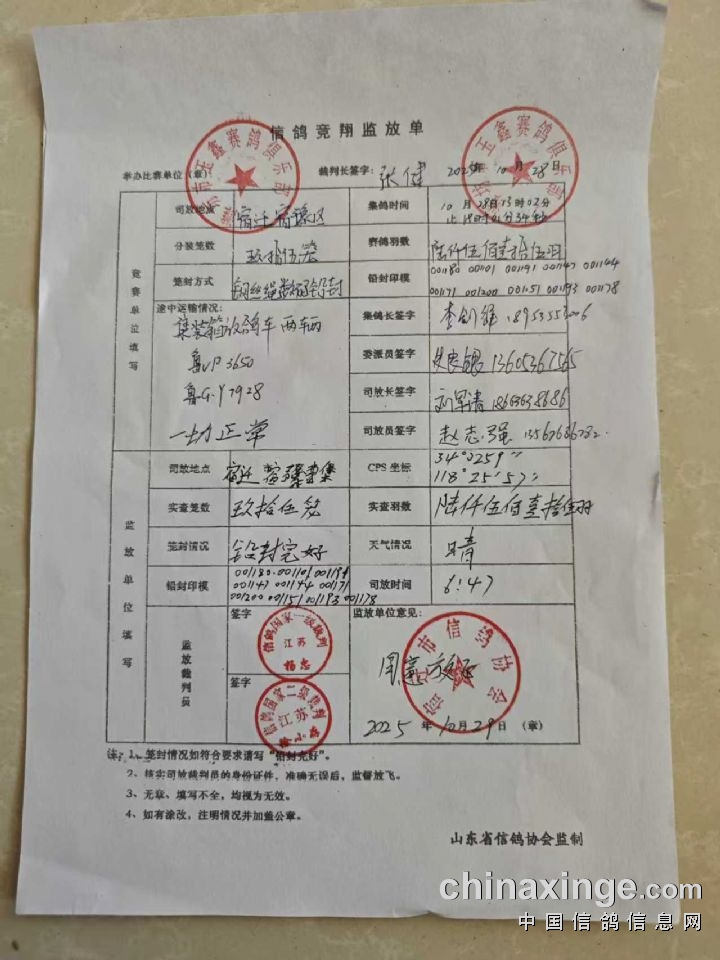 信鸽竞翔监放单
举办比赛单位（章） 裁判长签字：张健 2025年10月28日
竞赛单位填写
司放地点 宿迁 集鸽时间 10月28日13时02分
分装笼数 玖拾伍 赛鸽羽数 陆仟伍佰壹拾伍羽
笼封方式 钢丝绳 铅封 铅封印模 001180 001101 001191 001147 001144
001171 001200 001151 001193 001178
途中运输情况： 集鸽长签字
集装箱放鸽车两辆
委派员签字
鲁VP3650
司放长签字 18653638686
鲁GY7928
一切正常 司放员签字 赵志强
监放单位填写
司放地点 宿迁 CPS 坐标 34°
118°25′57″
实查笼数 玖拾伍笼 实查羽数 陆仟伍佰壹拾伍羽
笼封情况 铅封完好 天气情况 晴
铅封印模 001180 001101 001191
001147 001144 001171
001200 001151 001193 001178
司放时间 6:47
监放裁判员
签字 信鸽国家一级裁判 江苏 杨忠
签字 信鸽国家二级裁判 江苏
监放单位意见：
市信鸽协会
2025年10月29日（章）
注：1、笼封情况如符合要求请写“铅封完好”。
2、核实司放裁判员的身份证件，准确无误后，监督放飞。
3、无章、填写不全，均视为无效。
4、如有涂改，注明情况并加盖公章。
山东省信鸽协会监制
chinaxinge.com
中国信鸽信息网